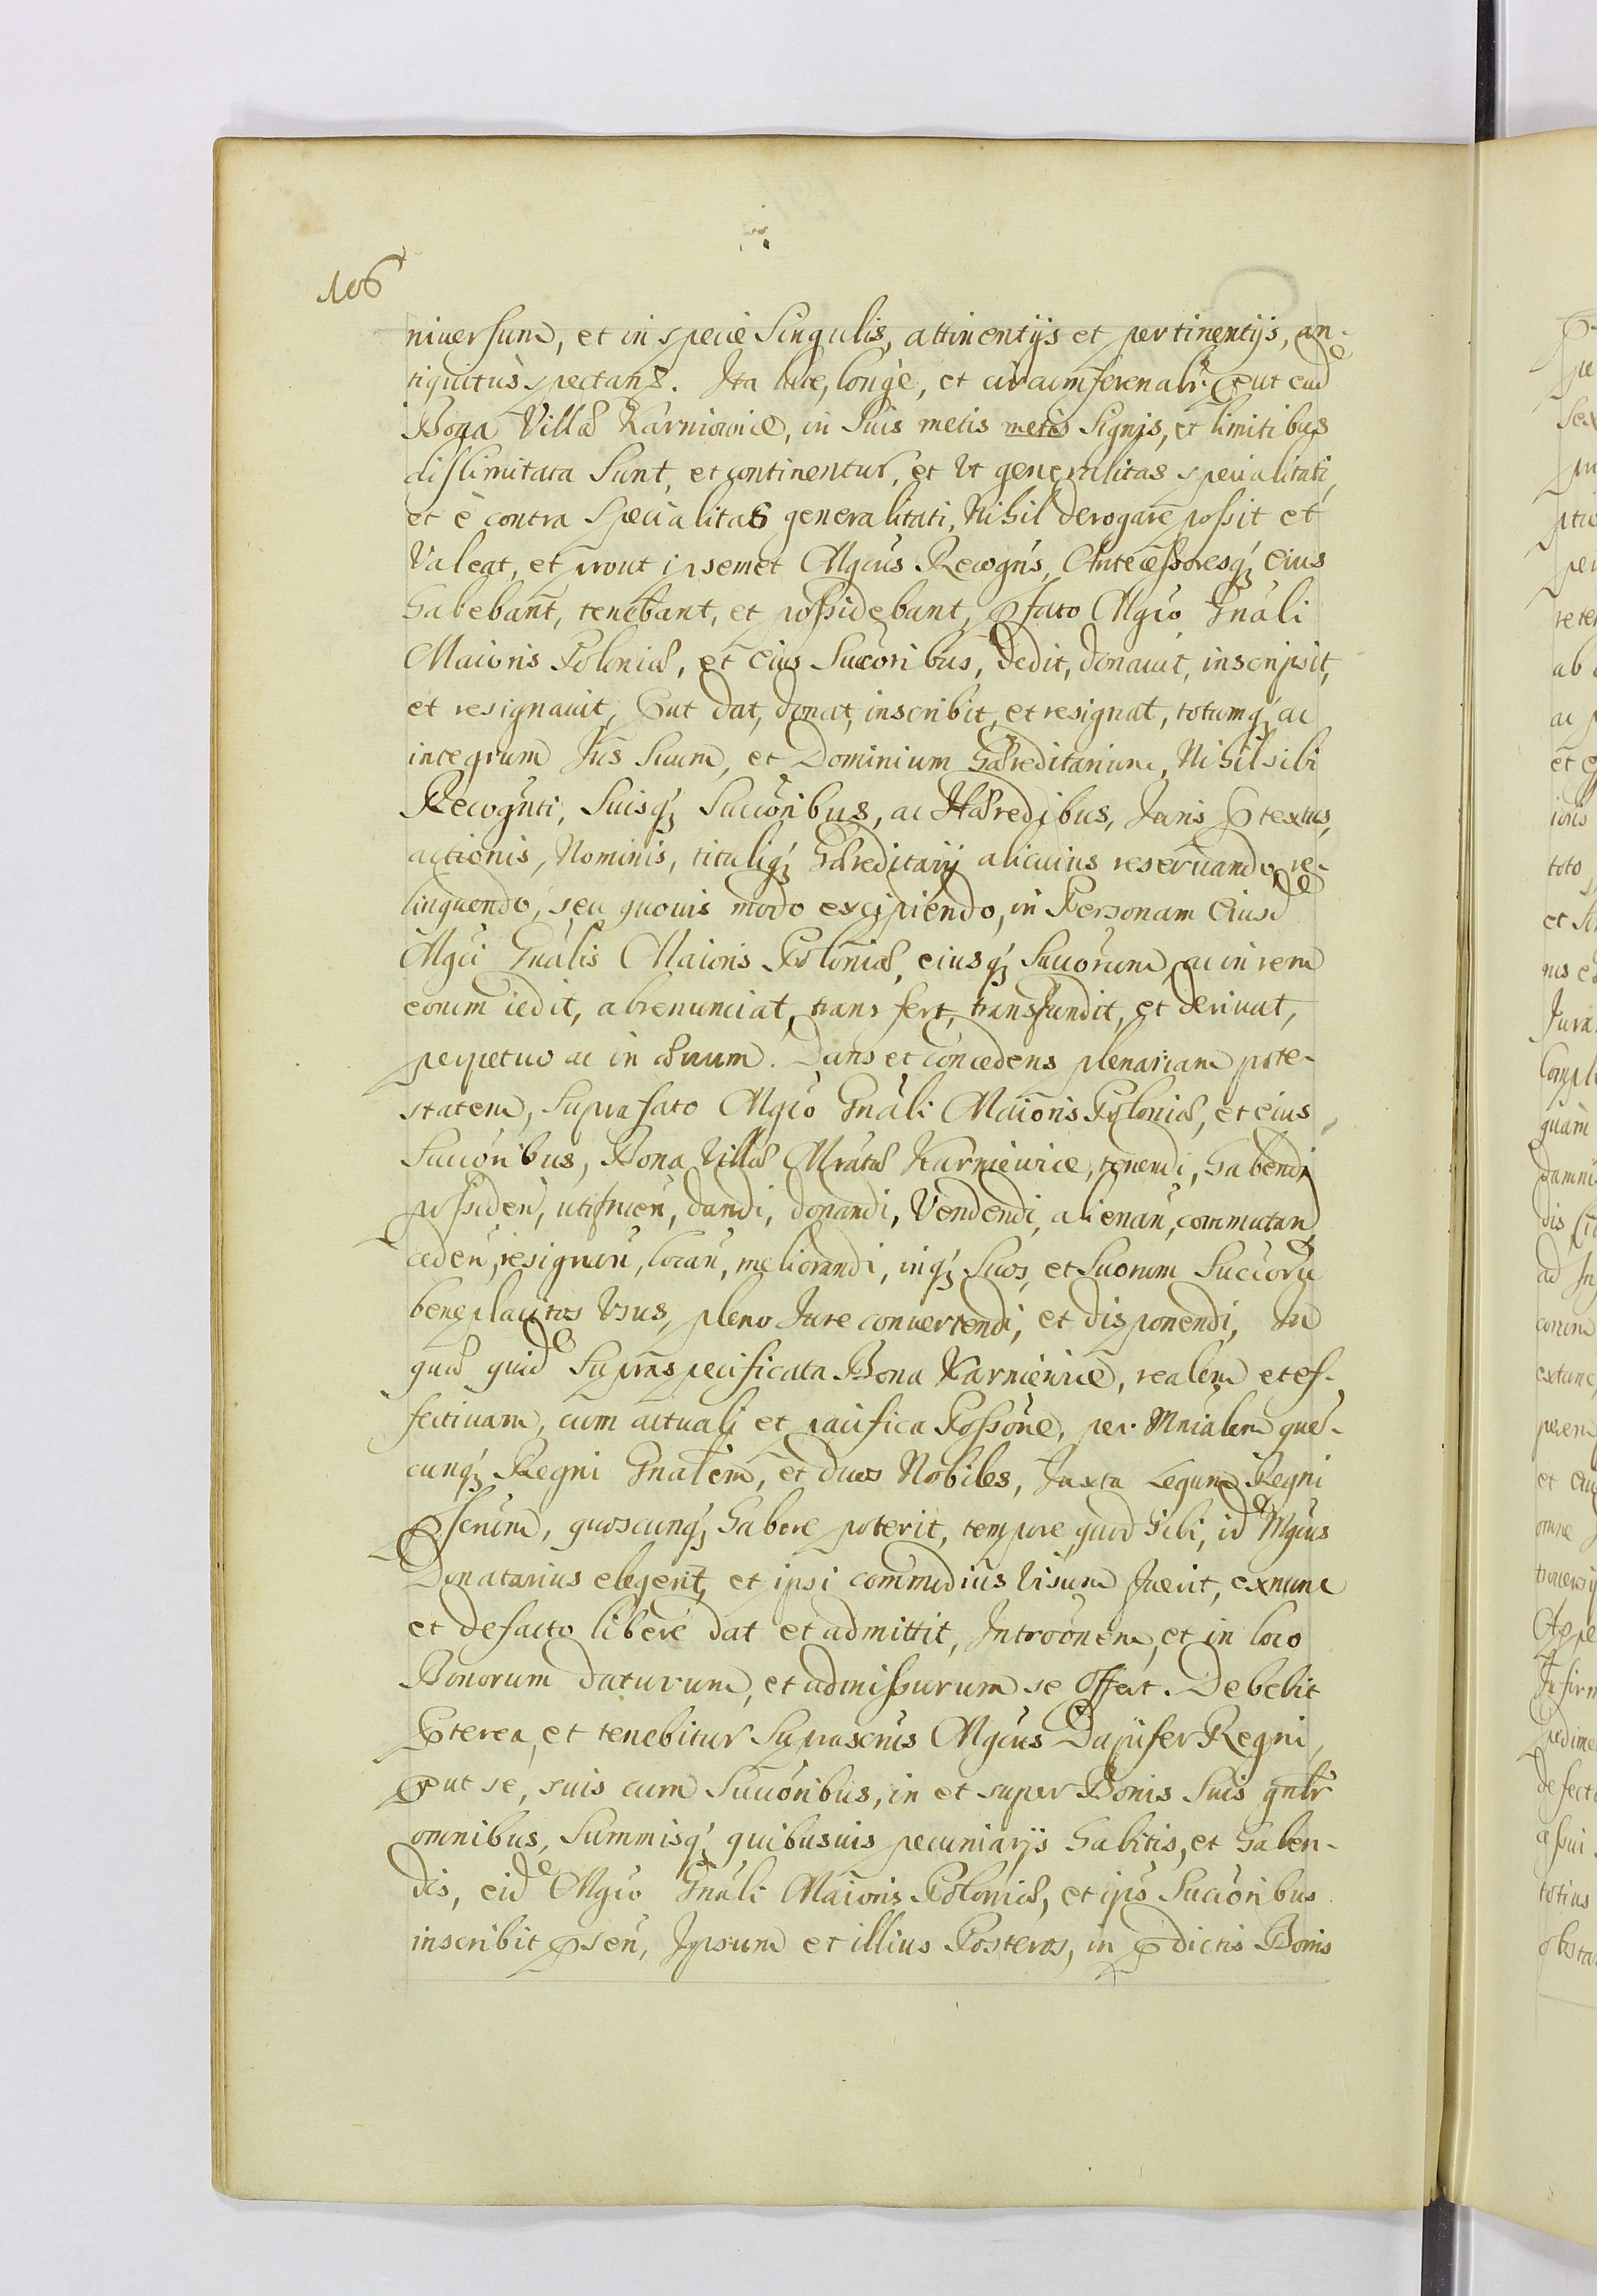 106
niversum, et in specie Singulis, attinentijs et pertinentijs, an-
tiquitùs spectans. Ita late, longè, et circumferenalr. prut ead
Bona Villæ Karniowice, in Suis metis metis Signis, et limitibus
dislimitata Sunt, et continentur, et Vt generalitas specialitati,
et è contra Specialitas generalitati, Nihil derogare possit et
Valeat, et prout ipsemet Mgcus Recogns, Antecessoresq; eius
habebant, tenebant, et possidebant, præfato Mgco Gnali
Maioris Poloniæ, et eius Succoribus, dedit, donauit, inscripsit,
et resignauit, Prut dat, donat, inscribit, et resignat, totumq; ac
integrum Jus Suum, et Dominium hæreditarium, Nihil sibi
Recognti, Suisq; Succoribus, ac Hæredibus, Juris Prætextus,
actionis, Nominis, tituliq; hæreditarij alicuius reseruando, re-
linquendo, seu quouis modo excipiendo, in Personam Eiusd
Mgci Gnalis Maioris Poloniæ, eiusq; Succorum, ac in rem
eorum cedit, abrenunciat, transfert, transfundit, et deriuat,
perpetuo ac in æuum. Dans et concedens plenariam pote-
statem, suprafato Mgco Gnali Maioris Poloniæ, et eius
Succoribus, Bona Villæ Mratæ Karniewice, tenendi, habendi
possiden, utifruen, dandi, donandi, Vendendi, alienan, commutan,
ceden, resignan, locan, meliorandi, inq; Suos, et Suorum Succoru
beneplacitos Vsus, pleno Jure conuertendi, et disponendi, In
quæ quid Supraspecificata Bona Karniewice, realem et ef-
fectiuam, cum actuali et pacifica Possone, per Mnialem que-
cunq; Regni Gnalem, et duos Nobiles, Juxta Legum Regni
Præscrium, quoscunq; habere poterit, tempore, quod Sibi, id Mgcus
Donatarius elegerit, et ipsi commodius Visum fuerit, exnunc
et defacto liberè dat et admittit, Introonem, et in loco
Bonorum daturum, et admissurum se offert. Debebit
Præterea, et tenebitur Suprascrus Mgcus Dapifer Regni,
prut se, suis cum Succoribus, in et super Bonis Suis gnlr
omnibus, Summisq; quibusuis pecuniarijs habitis, et haben-
dis, eid Mgco Gnali Maioris Poloniæ, et ips Succoribus
inscribit præsen, Ipsum et illius Posteros, in prædictis Bonis